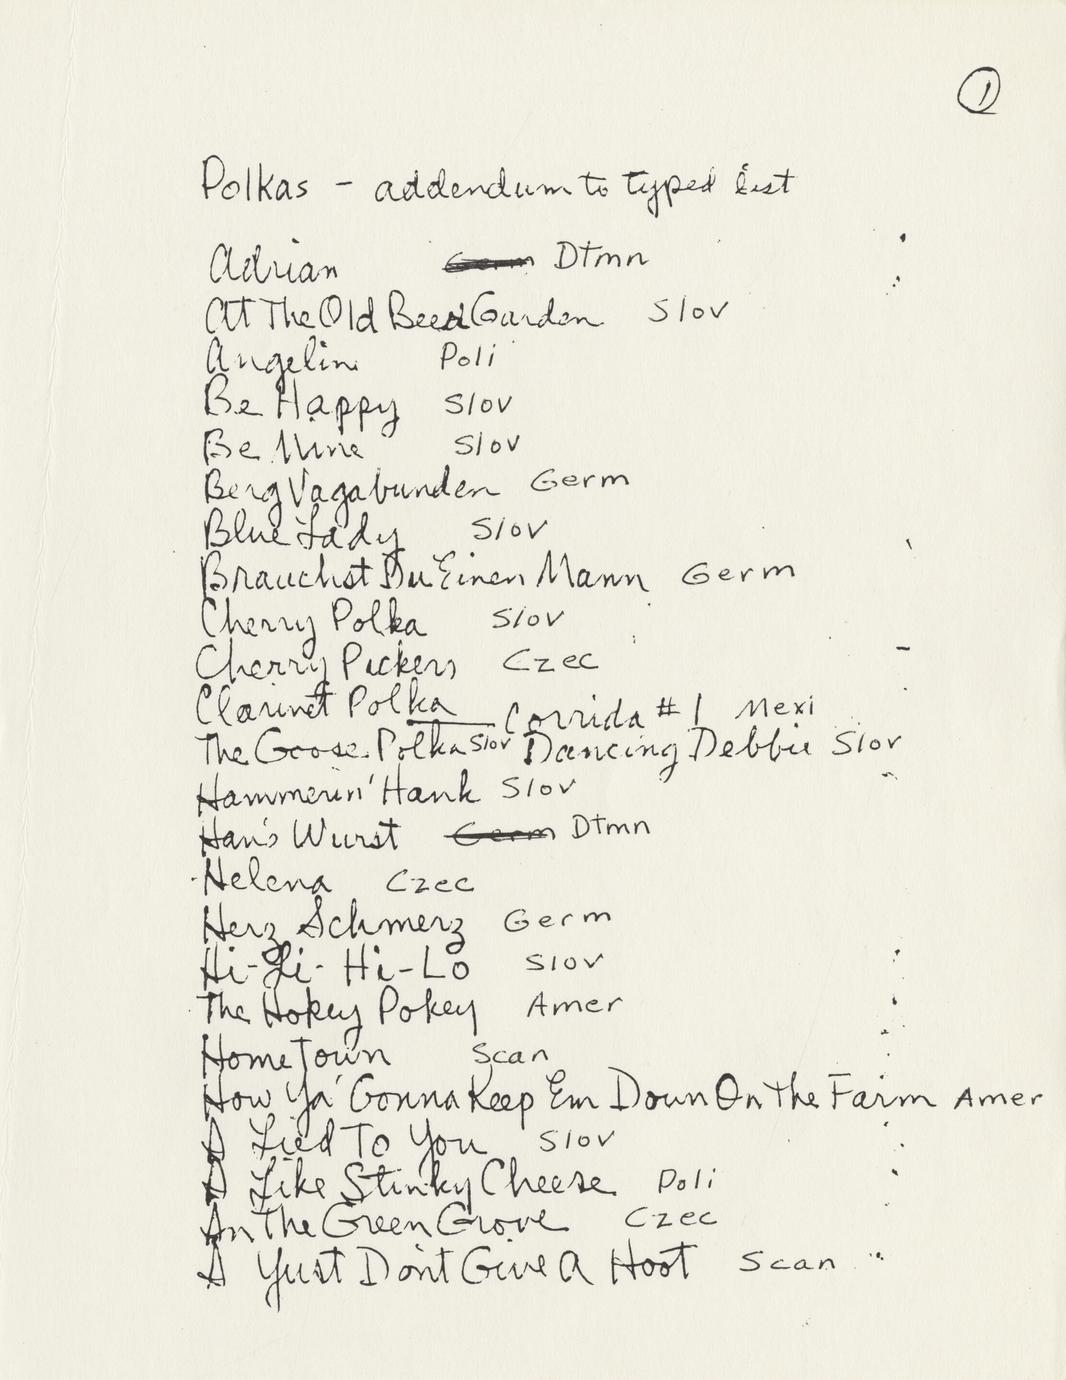 1
Polkas - addendum to typed list
Adrian Germ Dtmn
At The Old Beer Garden Slov
Angeline Poli
Be Happy Slov
Be Mine Slov
Berg Vagabunden Germ
Blue Lady Slov
Brauchst Du Einen Mann Germ
Cherry Polka Slov
Cherry Pickers Czec
Clarinet Polka Corrida #1 Mexi
The Goose Polka Slov Dancing Debbie Slov
Hammerin' Hank Slov
Han's Wurst Germ Dtmn
Helena Czec
Herz Schmerz Germ
Hi-Li-Hi-Lo Slov
The Hokey Pokey Amer
Home Town Scan
How Ya' Gonna Keep Em Down On The Farm Amer
I Lied To You Slov
I Like Stinky Cheese Poli
In The Green Grove Czec
I Yust Don't Give A Hoot Scan